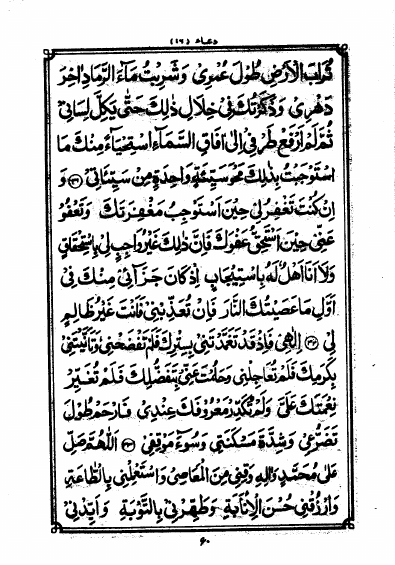 دعاء (١٦)
تُرَابَ الْاَرْضِ طُوْلَ عُمُرِيْ وَ شَرِبْتُ مَآءَ الرَّمَادِ اٰخِرَ
دَهْرِيْ وَ ذَكَرْتُكَ فِيْ خِلَالِ ذٰلِكَ حَتّٰى يَكِلَّ لِسَانِيْ
ثُمَّ لَمْ اَرْفَعْ طَرْفِيْ اِلٰى اٰفَاقِ السَّمَآءِ اسْتِحْيَآءً مِنْكَ مَا
اسْتَوْجَبْتُ بِذٰلِكَ مَحْوَ سَيِّئَةٍ وَاحِدَةٍ مِنْ سَيِّئَاتِيْ وَ
اِنْ كُنْتَ تَغْفِرُ لِيْ حِيْنَ اَسْتَوْجِبُ مَغْفِرَتَكَ وَ تَعْفُوْ
عَنِّيْ حِيْنَ اَسْتَحِقُّ عَفْوَكَ فَاِنَّ ذٰلِكَ غَيْرُ وَاجِبٍ لِيْ بِاسْتِحْقَاقٍ
وَ لَا اَنَا اَهْلٌ لَهٗ بِاسْتِيْجَابٍ اِذْ كَانَ جَزَآئِيْ مِنْكَ فِيْ
اَوَّلِ مَا عَصَيْتُكَ النَّارَ فَاِنْ تُعَذِّبْنِيْ فَاَنْتَ غَيْرُ ظَالِمٍ
لِيْ اِلٰهِيْ فَاِذْ قَدْ تَغَمَّدْتَنِيْ بِسِتْرِكَ فَلَمْ تَفْضَحْنِيْ وَ تَاَنَّيْتَنِيْ
بِكَرَمِكَ فَلَمْ تُعَاجِلْنِيْ وَ حَلُمْتَ عَنِّيْ بِتَفَضُّلِكَ فَلَمْ تُغَيِّرْ
نِعْمَتَكَ عَلَيَّ وَ لَمْ تُكَدِّرْ مَعْرُوْفَكَ عِنْدِيْ فَارْحَمْ طُوْلَ
تَضَرُّعِيْ وَ شِدَّةَ مَسْكَنَتِيْ وَ سُوْٓءَ مَوْقِفِيْ اَللّٰهُمَّ صَلِّ
عَلٰى مُحَمَّدٍ وَاٰلِهٖ وَ قِنِيْ مِنَ الْمَعَاصِيْ وَ اسْتَعْمِلْنِيْ بِالطَّاعَةِ
وَ ارْزُقْنِيْ حُسْنَ الْاِنَابَةِ وَ طَهِّرْنِيْ بِالتَّوْبَةِ وَ اَيِّدْنِيْ
۶۰